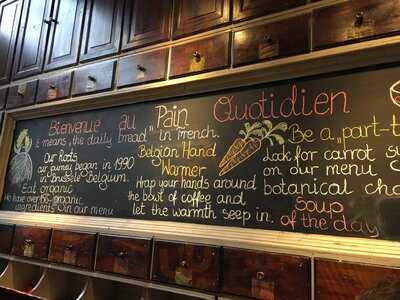 Bienvenue au Pain Quotidien
It means „the daily bread" in French.
Our Roots
our journey began in 1990
in Brussels, Belgium.
Eat organic
We have over 65 organic
ingredients in our menu
Belgian Hand
Warmer
Wrap your hands around
the bowl of coffee and
let the warmth seep in.
Be a "part-t
Look for carrot sy
on our menu
botanical cho
Soup
of the day